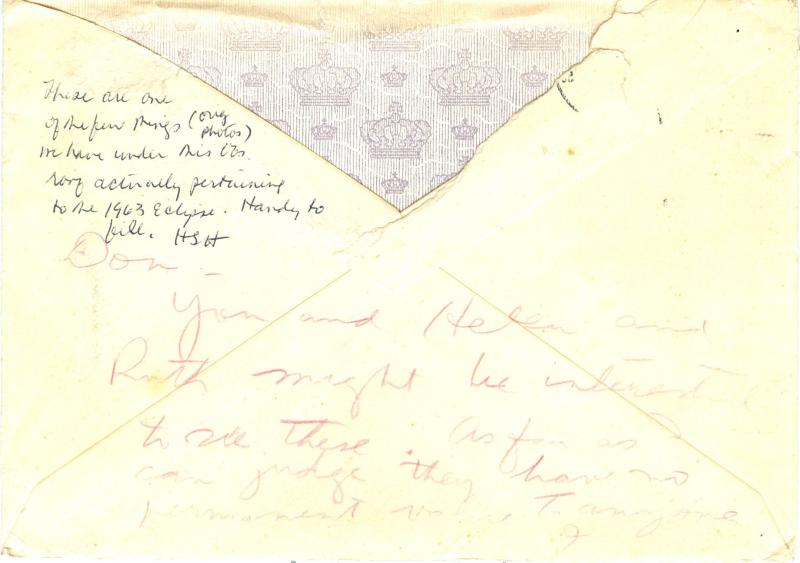 These are one
of the few things (orig
photos)
we have under this
actually pertaining
to the 1963 Eclipse. Handy to
file. HSH
Don -
You and Helen and
Ruth might be interested
to see these. As far as I
can judge they have no
permanent value to anyone